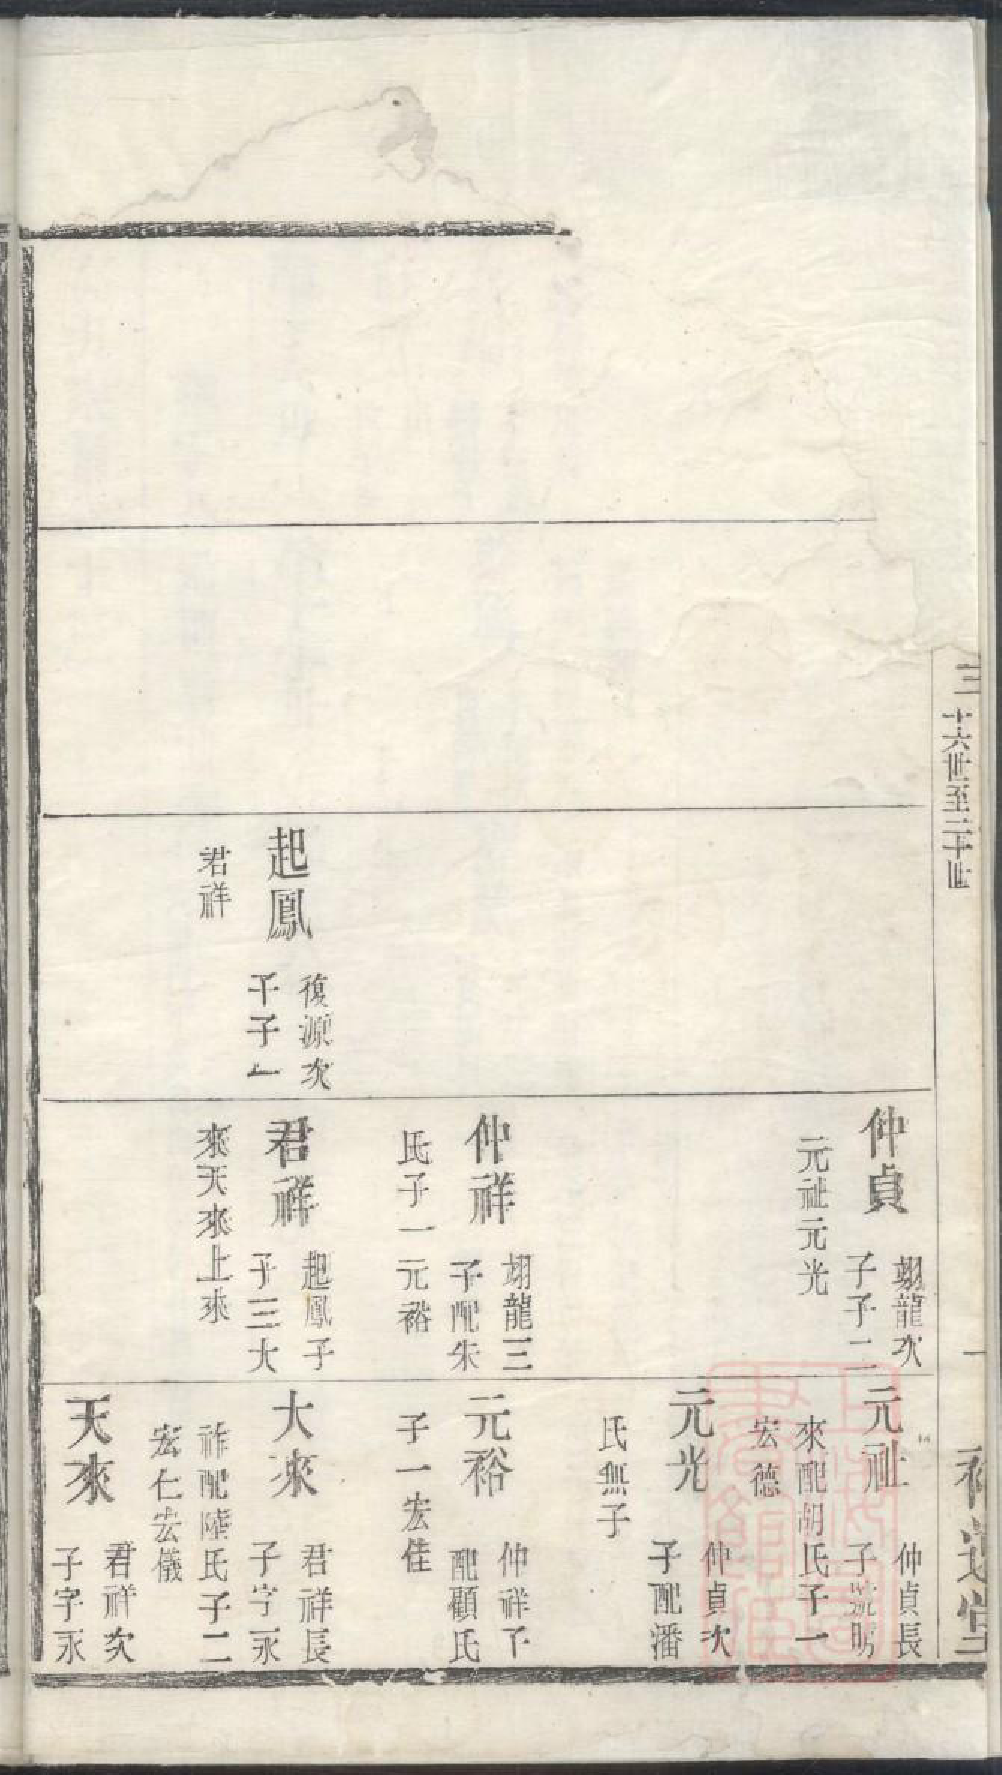 三
十六世至二十世
一
起鳳
復源次
子子一
君祥
仲貞
翊龍次
子子二
元祉元光
仲祥
翊龍三
子配朱
氏子一元裕
君祥
起鳳子
子三大
來天來上來
元祉
仲貞長
子號
來配胡氏子一
宏德
元光
仲貞次
子配潘
氏無子
元裕
仲祥子
配顧氏
子一宏佳
大來
君祥長
子字永
祚配陸氏子二
宏仁宏儀
天來
君祥次
子字永